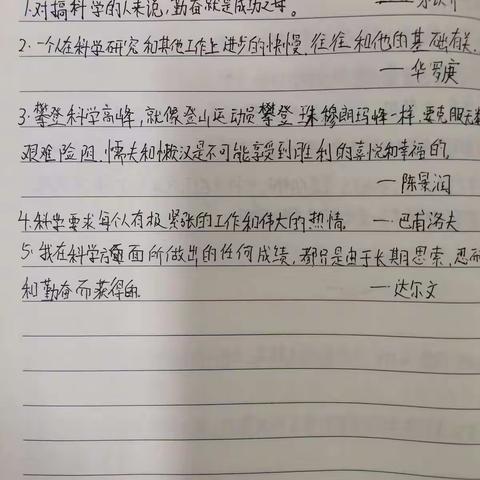 1.对搞科学的人来说,勤奋就是成功之母。
2.一个人在科学研究和其他工作上进步的快慢,往往和他的基础有关.
——华罗庚
3.攀登科学高峰,就像登山运动员攀登珠穆朗玛峰一样,要克服无数
艰难险阻,懦夫和懒汉是不可能享受到胜利的喜悦和幸福的.
——陈景润
4.科学要求每个人有极紧张的工作和伟大的热情。 ——巴甫洛夫
5.我在科学方面所做出的任何成绩,都只是由于长期思索,忍耐
和勤奋而获得的. ——达尔文